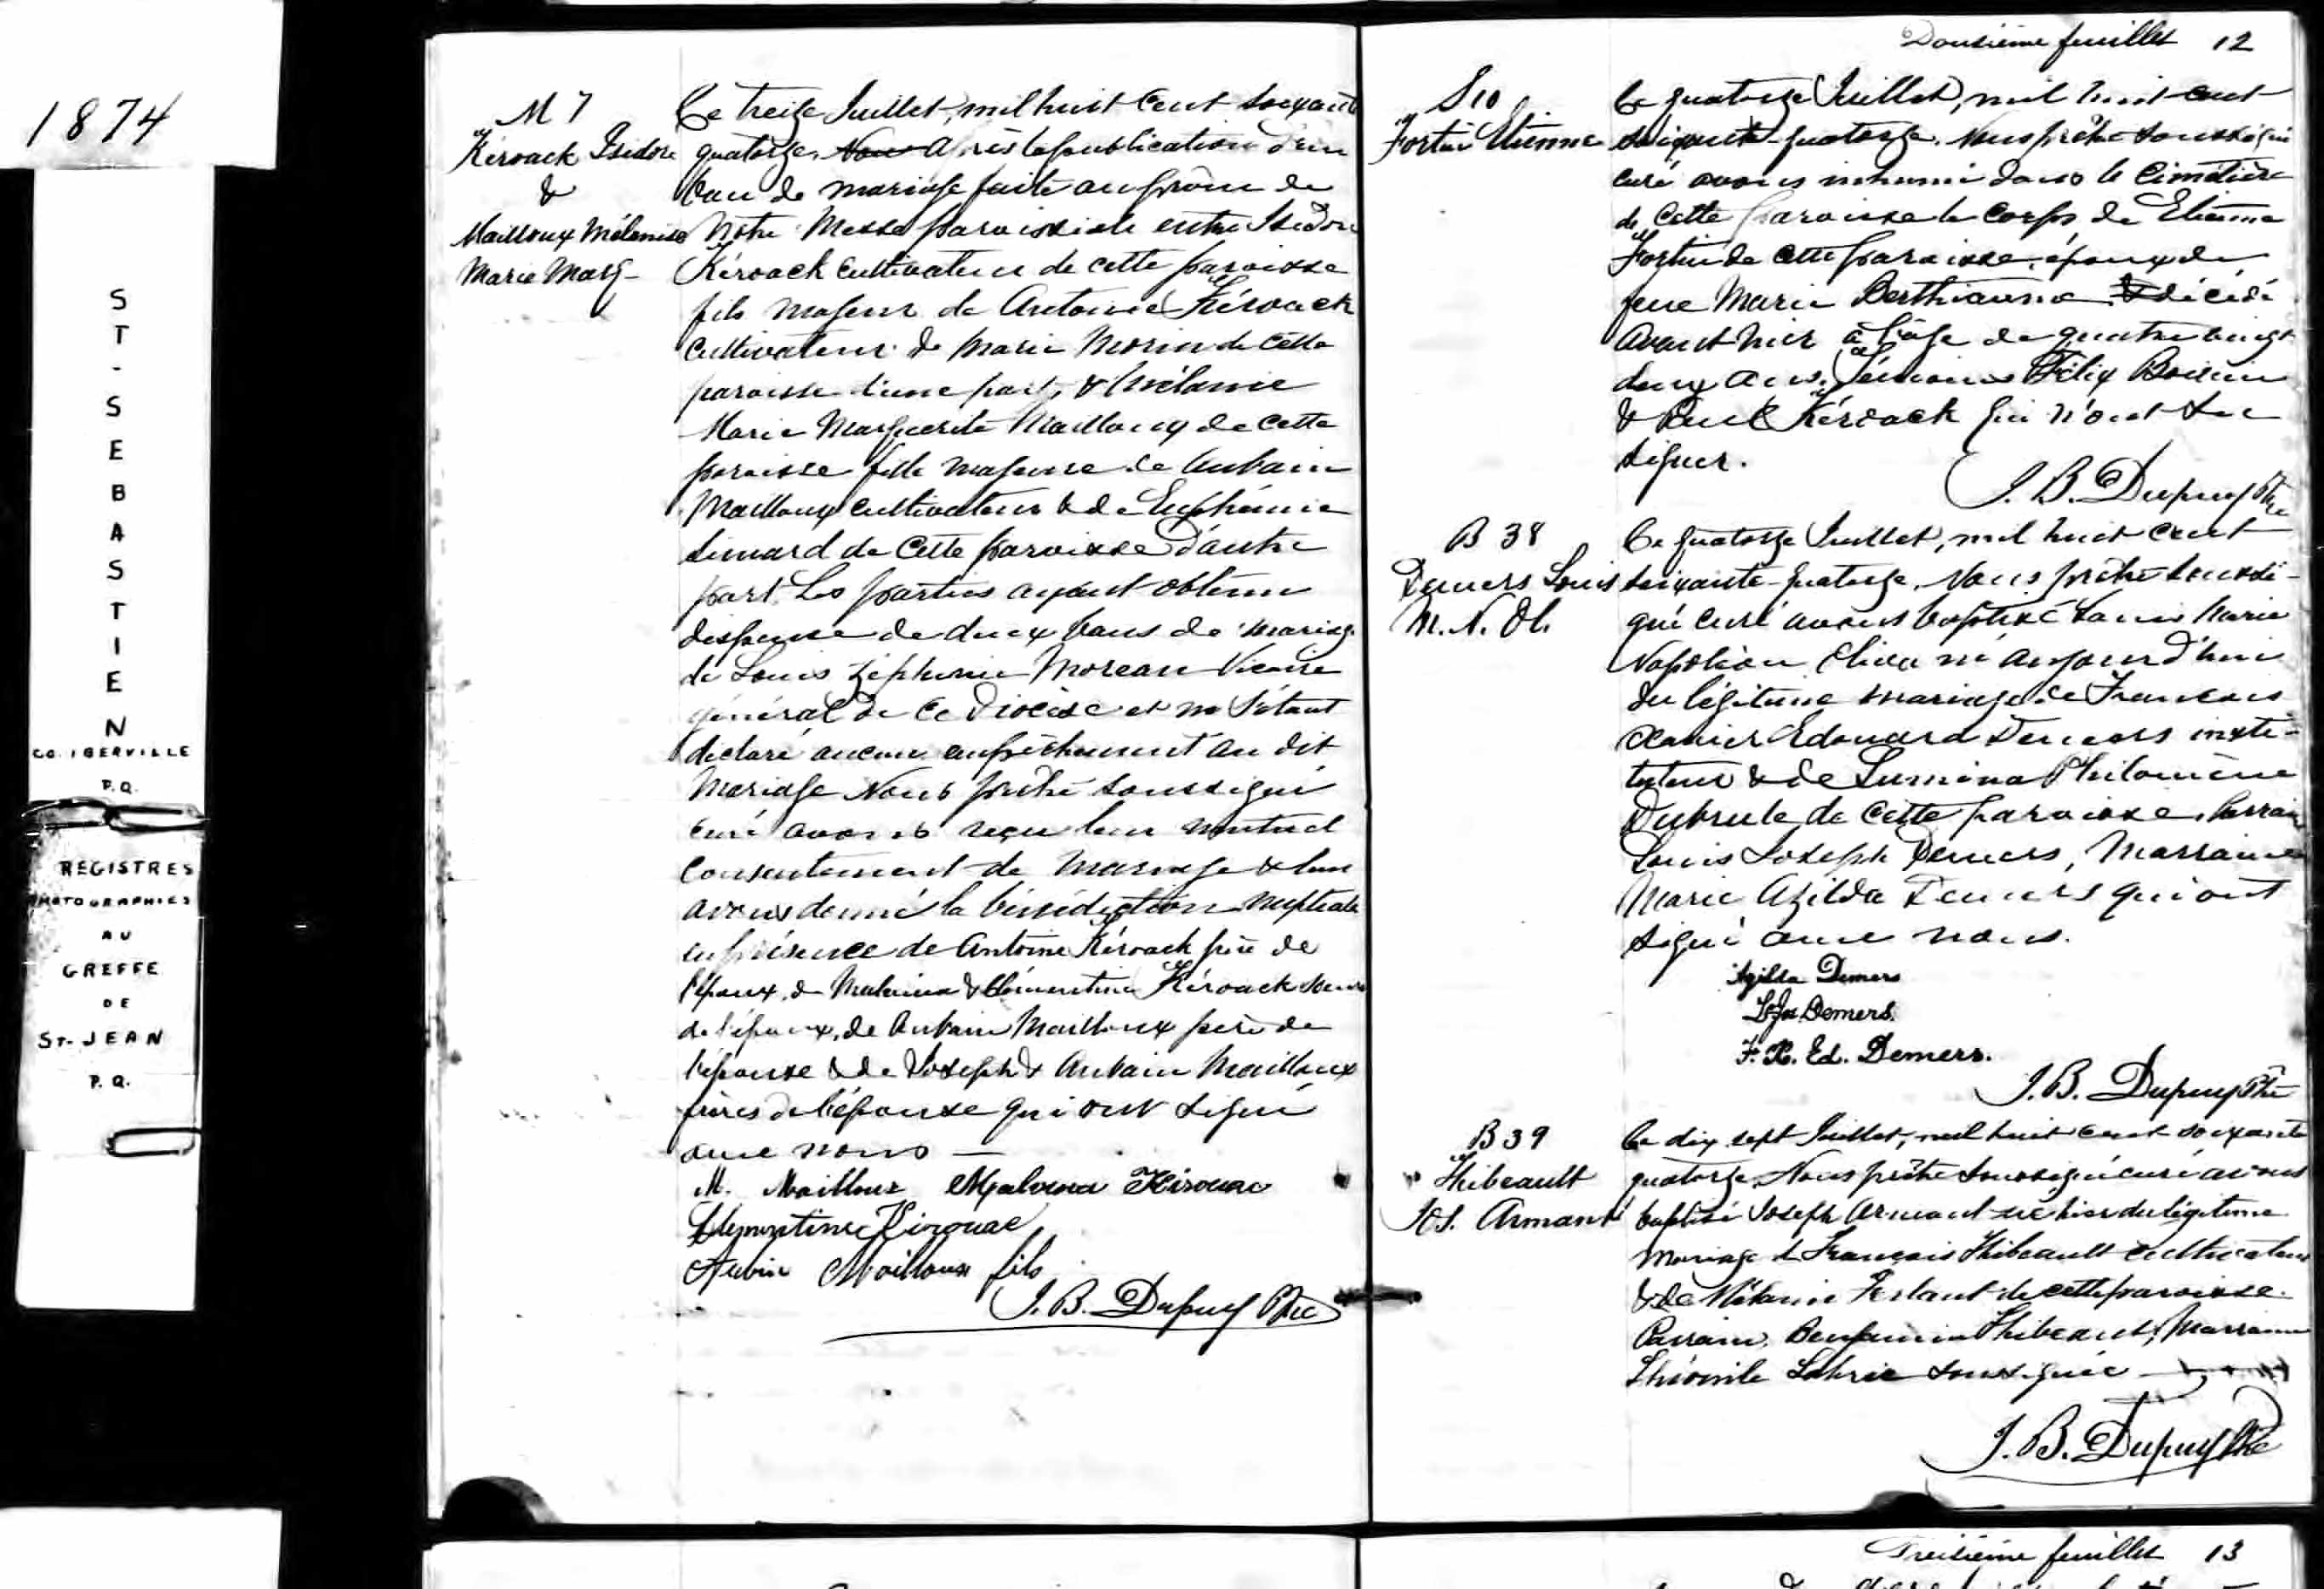 1874
ST-SEBASTIEN
CO. IBERVILLE
P.Q.
REGISTRES
PHOTOGRAPHIES
AU
GREFFE
DE
ST-JEAN
P.Q.
M 7
Kéroack Isidore
&
Mailloux Mélanise
Marie Marg-
Ce treize Juillet, mil huit cent soixante
quatorze, Nous Après la publication d'un
ban de mariage faite au prône de
Notre Messe paroissiale entre Isidore
Kéroack cultivateur de cette paroisse
fils majeur de Antoine Kéroack
cultivateur & Marie Morin de cette
paroisse d'une part, & Mélanie
Marie Marguerite Mailloux de cette
paroisse fille majeure de Aubain
Mailloux cultivateur & de Euphémie
Simard de cette paroisse d'autre
part. Les parties ayant obtenu
dispense de deux bans de mariage
de Louis Zéphirin Moreau Vicaire
général de ce Diocèse et ne s'étant
déclaré aucun empêchement au dit
Mariage Nous prêtre soussigné
curé avons reçu leur mutuel
consentement de mariage & leur
avons donné la bénédiction nuptiale
en présence de Antoine Kéroack père de
l'époux, de Malvina & Clémentine Kéroack soeurs
de l'époux, de Aubain Mailloux père de
l'épouse & de Joseph & Aubain Mailloux
frères de l'épouse qui ont signé
avec nous —
M. Mailloux Malvina Kirouac
Clementine Kirouac
Aubin Mailloux fils
J. B. Dupuy Ptre
Douzième feuillet 12
S 10
Fortin Etienne
Ce quatorze Juillet, mil huit cent
soixante-quatorze. Nous prêtre soussigné
curé avons inhumé dans le cimetière
de cette paroisse le corps de Etienne
Fortin de cette paroisse, époux de
feue Marie Berthiaume & décédé
avant hier à l'âge de quatre vingt
deux ans. Témoins Félix Boivin
& Kéroack qui n'ont su
signer.
J. B. Dupuy Ptre
B 38
Demers Louis
M. N. Ol.
Ce quatorze Juillet, mil huit cent
soixante-quatorze, Nous prêtre soussi-
gné curé avons baptisé Louis Marie
Napoléon né aujourd'hui
du légitime mariage de Francois
Xavier Edouard Demers insti-
tuteur & de Lumina Philomène
Dubrule de cette paroisse. Parrain
Louis Joseph Demers, Marraine
Marie Azilda Demers qui ont
signé avec nous.
Azilda Demers
Ls Jos. Demers.
F. X. Ed. Demers.
J. B. Dupuy Ptre
B 39
Thibeault
Jos. Armand
Ce dix sept Juillet, mil huit cent soixante
quatorze, Nous prêtre soussigné curé avons
baptisé Joseph Armand né hier du légitime
mariage de François Thibeault cultivateur
& de Mélanie de cette paroisse.
Parrain, Benjamin Thibeault, Marraine
soussignée
J. B. Dupuy Ptre
Treizième feuillet 13